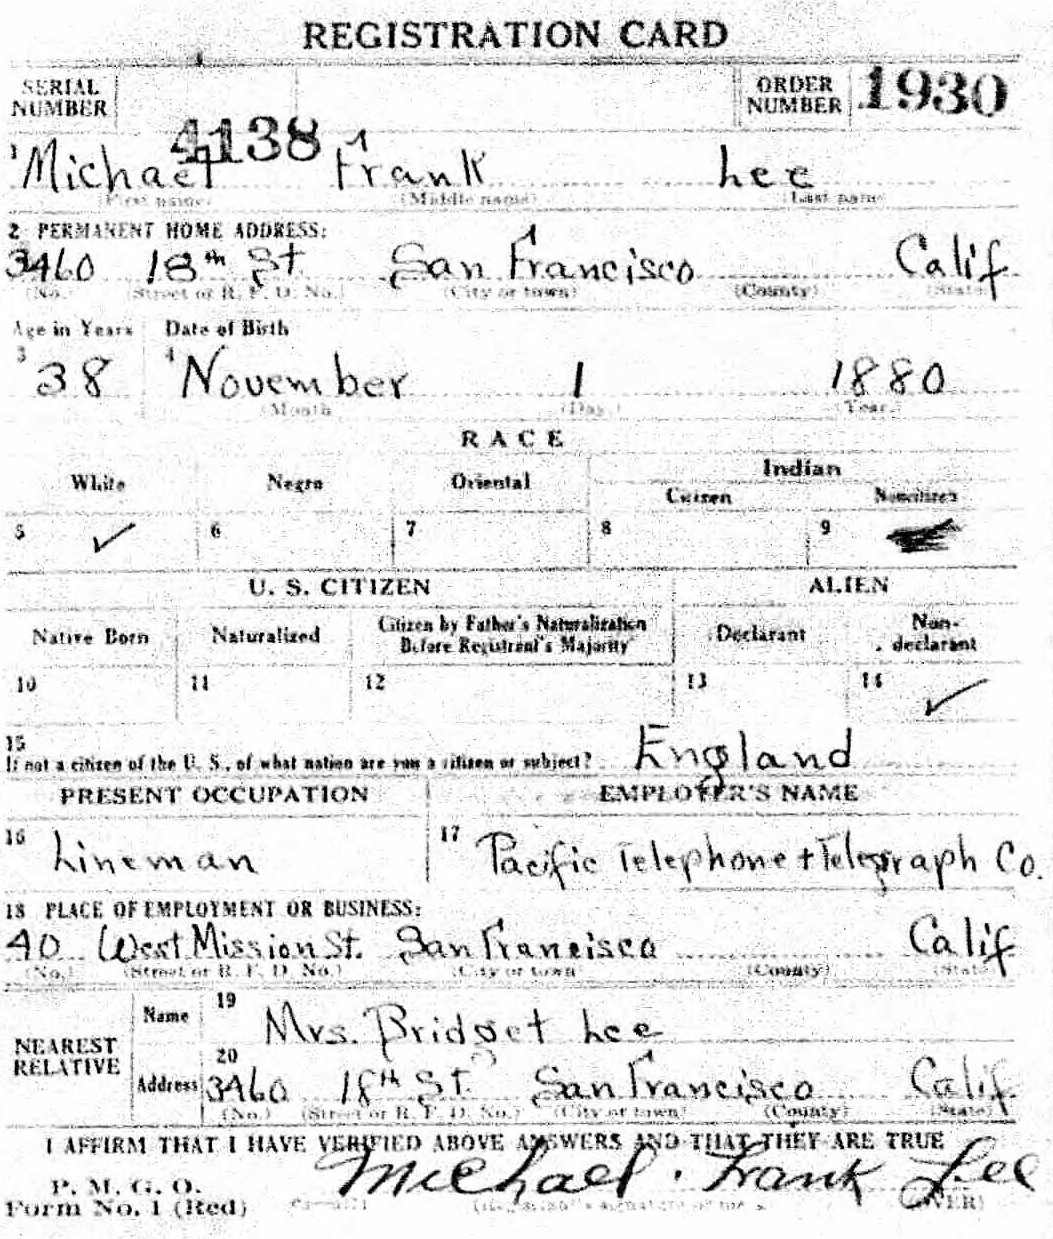 REGISTRATION CARD
SERIAL NUMBER 4138 ORDER NUMBER 1930
1 Michael Frank Lee
(First name) (Middle name) (Last name)
2 PERMANENT HOME ADDRESS:
3460 18th St. San Francisco Calif
(No.) (Street or R. F. D. No.) (City or town) (County) (State)
Age in Years Date of Birth
3 38 4 November 1 1880
(Month (Day.) (Year.)
RACE
White Negro Oriental Indian
Citizen Noncitizen
5 ✓ 6 7 8 9
U. S. CITIZEN ALIEN
Native Born Naturalized Citizen by Father's Naturalization Before Registrant's Majority Declarant Non-declarant
10 11 12 13 14 ✓
15
If not a citizen of the U. S., of what nation are you a citizen or subject? England
PRESENT OCCUPATION EMPLOYER'S NAME
16 Lineman 17 Pacific Telephone + Telegraph Co.
18 PLACE OF EMPLOYMENT OR BUSINESS:
40 West Mission St. San Francisco Calif
(No.) (Street or R. F. D. No.) (City or town (County) (State)
NEAREST RELATIVE
Name 19 Mrs. Bridget Lee
Address 20 3460 18th St. San Francisco Calif
(No.) (Street or R. F. D. No.) (City or town) (County) (State)
I AFFIRM THAT I HAVE VERIFIED ABOVE ANSWERS AND THAT THEY ARE TRUE
P. M. G. O.
Form No. 1 (Red) Michael Frank Lee
(OVER)